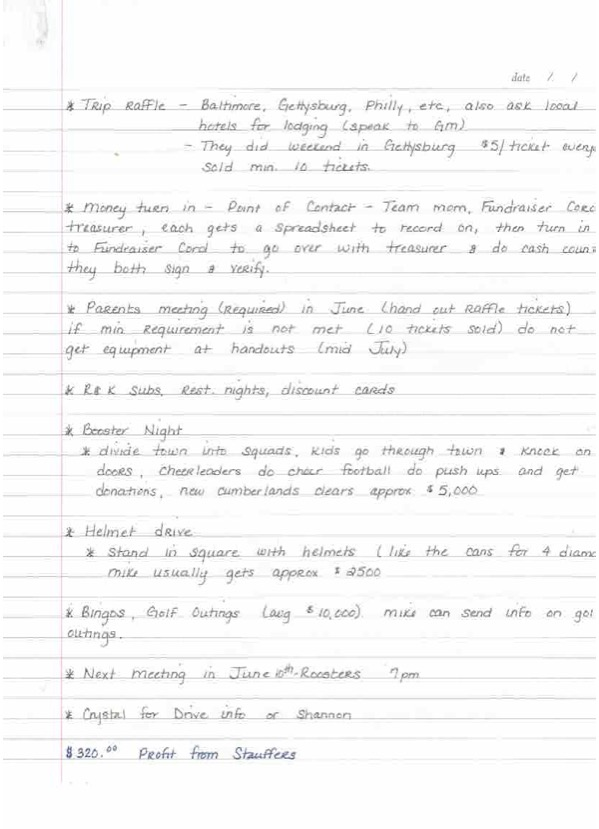 date / /
* Trip Raffle - Baltimore, Gettysburg, Philly, etc, also ask local
hotels for lodging (speak to GM)
- They did weekend in Gettysburg $5/ticket every
sold min. 10 tickets.
* Money turn in - Point of Contact - Team mom, Fundraiser Cord
treasurer, each gets a spreadsheet to record on, then turn in
to Fundraiser Cord to go over with treasurer & do cash count
they both sign & verify.
* Parents meeting (Required) in June (hand out Raffle tickets)
if min Requirement is not met (10 tickets sold) do not
get equipment at handouts (mid July)
* R&K Subs, Rest. nights, discount cards
* Booster Night
* divide town into squads, kids go through town & knock on
doors, cheerleaders do cheer football do push ups and get
donations, new cumberlands clears approx $5,000
* Helmet drive
* Stand in square with helmets (like the cans for 4 diamo
mike usually gets approx $2500
* Bingos, Golf Outings (avg $10,000) mike can send info on gol
outings.
* Next meeting in June 10th - Roosters 7pm
* Crystal for Drive info or Shannon
$320.00 Profit from Stauffers